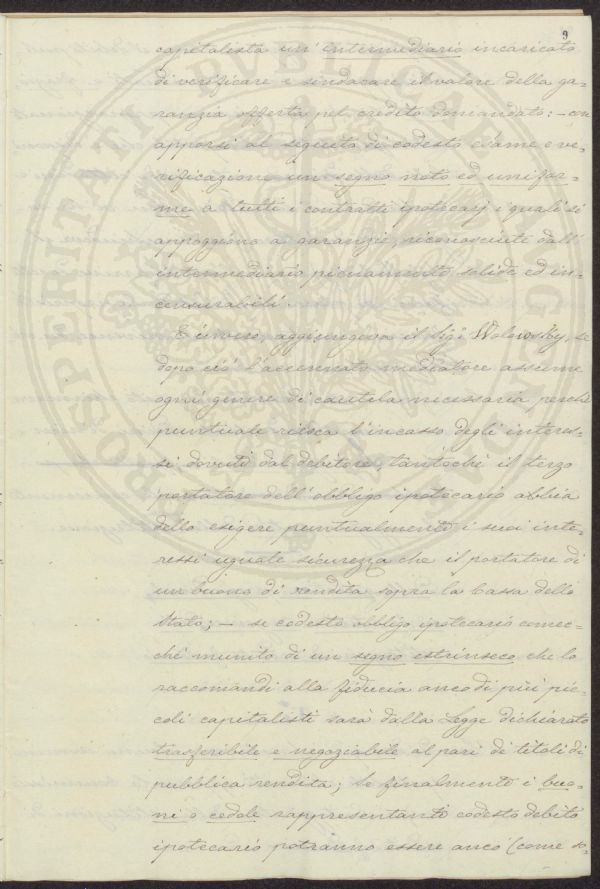 9
capitalista un' intermediario incaricato
di verificare e sindacare il valore della ga-
ranzia offerta pel credito domandato: – con
apporsi al seguito di codesto esame e ve-
rificazione un segno noto ed unifor-
me a tutti i contratti ipotecarj i quali si
appoggiono a garanzie, riconosciute dall'
intermediario pienamente solide ed in-
censurabili.
È invero, aggiungeva il Sigr Wolowsky, se
dopo ciò l'accennato mediatore assume
ogni genere di cautela necessaria, perchè
puntuale riesca l'incasso degli interes-
si dovuti dal debitore, tantochè il terzo
portatore dell'obbligo ipotecario abbia
dello esigere puntualmente i suoi inte-
ressi uguale sicurezza che il portatore di
un buono di rendita sopra la Cassa dello
Stato; – se codesto obbligo ipotecario comec-
chè munito di un segno estrinseco che lo
raccomandi alla fiducia anco di più pic-
coli capitalisti sarà dalla Legge dichiarato
trasferibile e negoziabile al pari de titoli di
pubblica rendita; Se finalmente i buo-
ni o cedole rappresentanti codesto debito
ipotecario potranno essere anco (come so-
PROSPERITATI PVBLICAE AVGENDAE